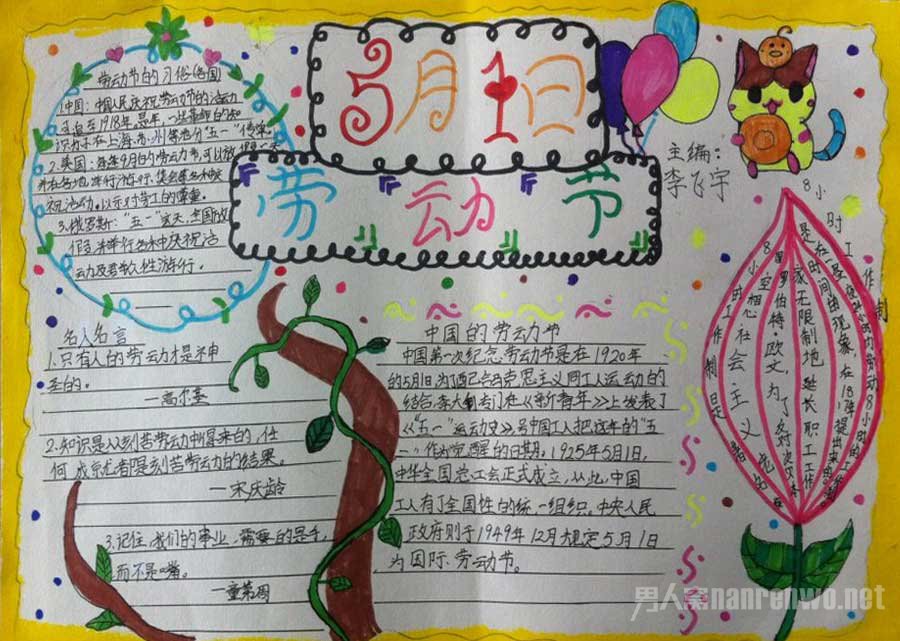 5月1日
劳动节
主编：
李飞宇
劳动节的习俗(各国)
1.中国：中国人民庆祝劳动节的活动
可追至1918年。是年，一些革命的知
识分子在上海、苏州等地
2.美国：每年9月的劳动节，可以放假一天
祝活动，以示对劳工的尊重
3.俄罗斯："五一"这天，全国放
假并举行各种庆祝活
动及群众性游行。
名人名言
1.只有人的劳动才是神
圣的。
—高尔基
2.知识是从刻苦劳动中得来的，任
何成就者是刻苦劳动的结果。
—宋庆龄
3.记住，我们的事业，需要的是手，
而不是嘴。
—童第周
中国的劳动节
中国第一次纪念劳动节是在1920年
的5月1日，为了配合马克思主义同工人运动的
结合，李大钊专门在《新青年》上发表了
《"五一"运动史》，号中国工人把这年的"五
一"作为觉醒的日期。1925年5月1日，
中华全国总工会正式成立，从此，中国
工人有了全国性的统一组织。中央人民
政府则于1949年12月规定5月1日
为国际劳动节。
8小时工作制
8小时的工作制是
空想社会主义者
罗伯特·欧文，为了反对资本
家无限制地延长职工工作
时间的现象，在18
男人窝nanrenwo.net